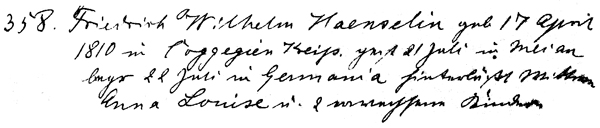 358. Friedrich Wilhelm Haenselin geb 17 April
1810 in Toggegien Kreis. gest 21 Juli in Meian
begr 22 Juli in Germania hinterläßt Wittwe
Anna Louise u. 2 erwachsene Kinder